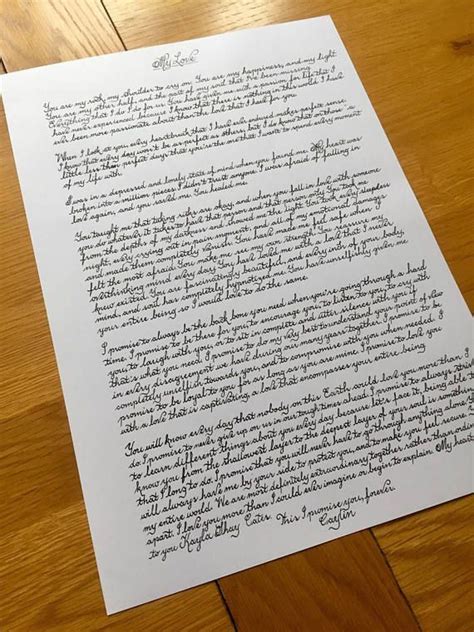 My Love
You are my rock, my shoulder to cry on. You are my happiness and my light
You are my other half, and the part of my soul that I've been missing.
Everything that I do for us. You have given me with a passion for life that I
have never experienced because I know that there is nothing in this world I have
ever been more passionate about than the love that I feel for you.
When I look at you every heartbreak that I have ever endured makes perfect sense.
I know that every day won't be as perfect as others, but I do know that on those
little less than perfect days that you're the one that I want to spend every moment
of my life with.
I was in a depressed and lonely state of mind when you found me. My heart was
broken into a million pieces. I didn't trust anyone. I was afraid of falling in
love again, and you saved me. You healed me.
You taught me that taking risks was okay, and when you fall in love with someone
you do whatever it takes to hold that person and that person only. You took me
from the depths of my darkness and showed me the light. You took every sleepless
night, every crying out in pain moment, and all of my emotional damage
and made them completely vanish. You have made me feel safe where I
felt the most afraid. You make me see my own strength. You reassure my
overthinking mind every day. You have told me with a love that I never
knew existed. You are fascinatingly beautiful, and every inch of your body,
mind, and soul has completely hypnotized me. You have unselfishly given me
your entire being so I would love to do the same.
I promise to always be the back bone you need when you're going through a hard
time. I promise to be there for you to encourage you, to listen to you, to cry with
you, to laugh with you, or to sit in complete and utter silence with you if
that's what you need. I promise to do my very best to understand your point of view
in every disagreement we have during our many years together. I promise to be
completely unselfish towards you, and to compromise with you when needed. I
promise to be loyal to you for as long as you are mine. I promise to love you
with a love that is captivating, a love that encompasses your entire being.
You will know every day that nobody on this Earth could love you more than I
do. I promise to never give up on us in our tough times ahead. I promise to always
to learn different things about you every day because let's face it, being able to
know you from the shallowest layer to the deepest layer of your soul is something
that I long to do. I promise that you will never have to go through anything alone. I
will always have me by your side to protect you, and to make you feel secure
my entire world. We are most definitely extraordinary together rather than ordinary
apart. I love you more than I could ever imagine or begin to explain. My heart
to you Kayla Shay Cater. This I promise you, forever.
Caytin